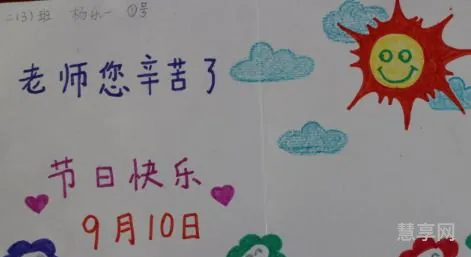 二(3)班 杨乐一 ①号
老师您辛苦了
节日快乐
9月10日
慧享网